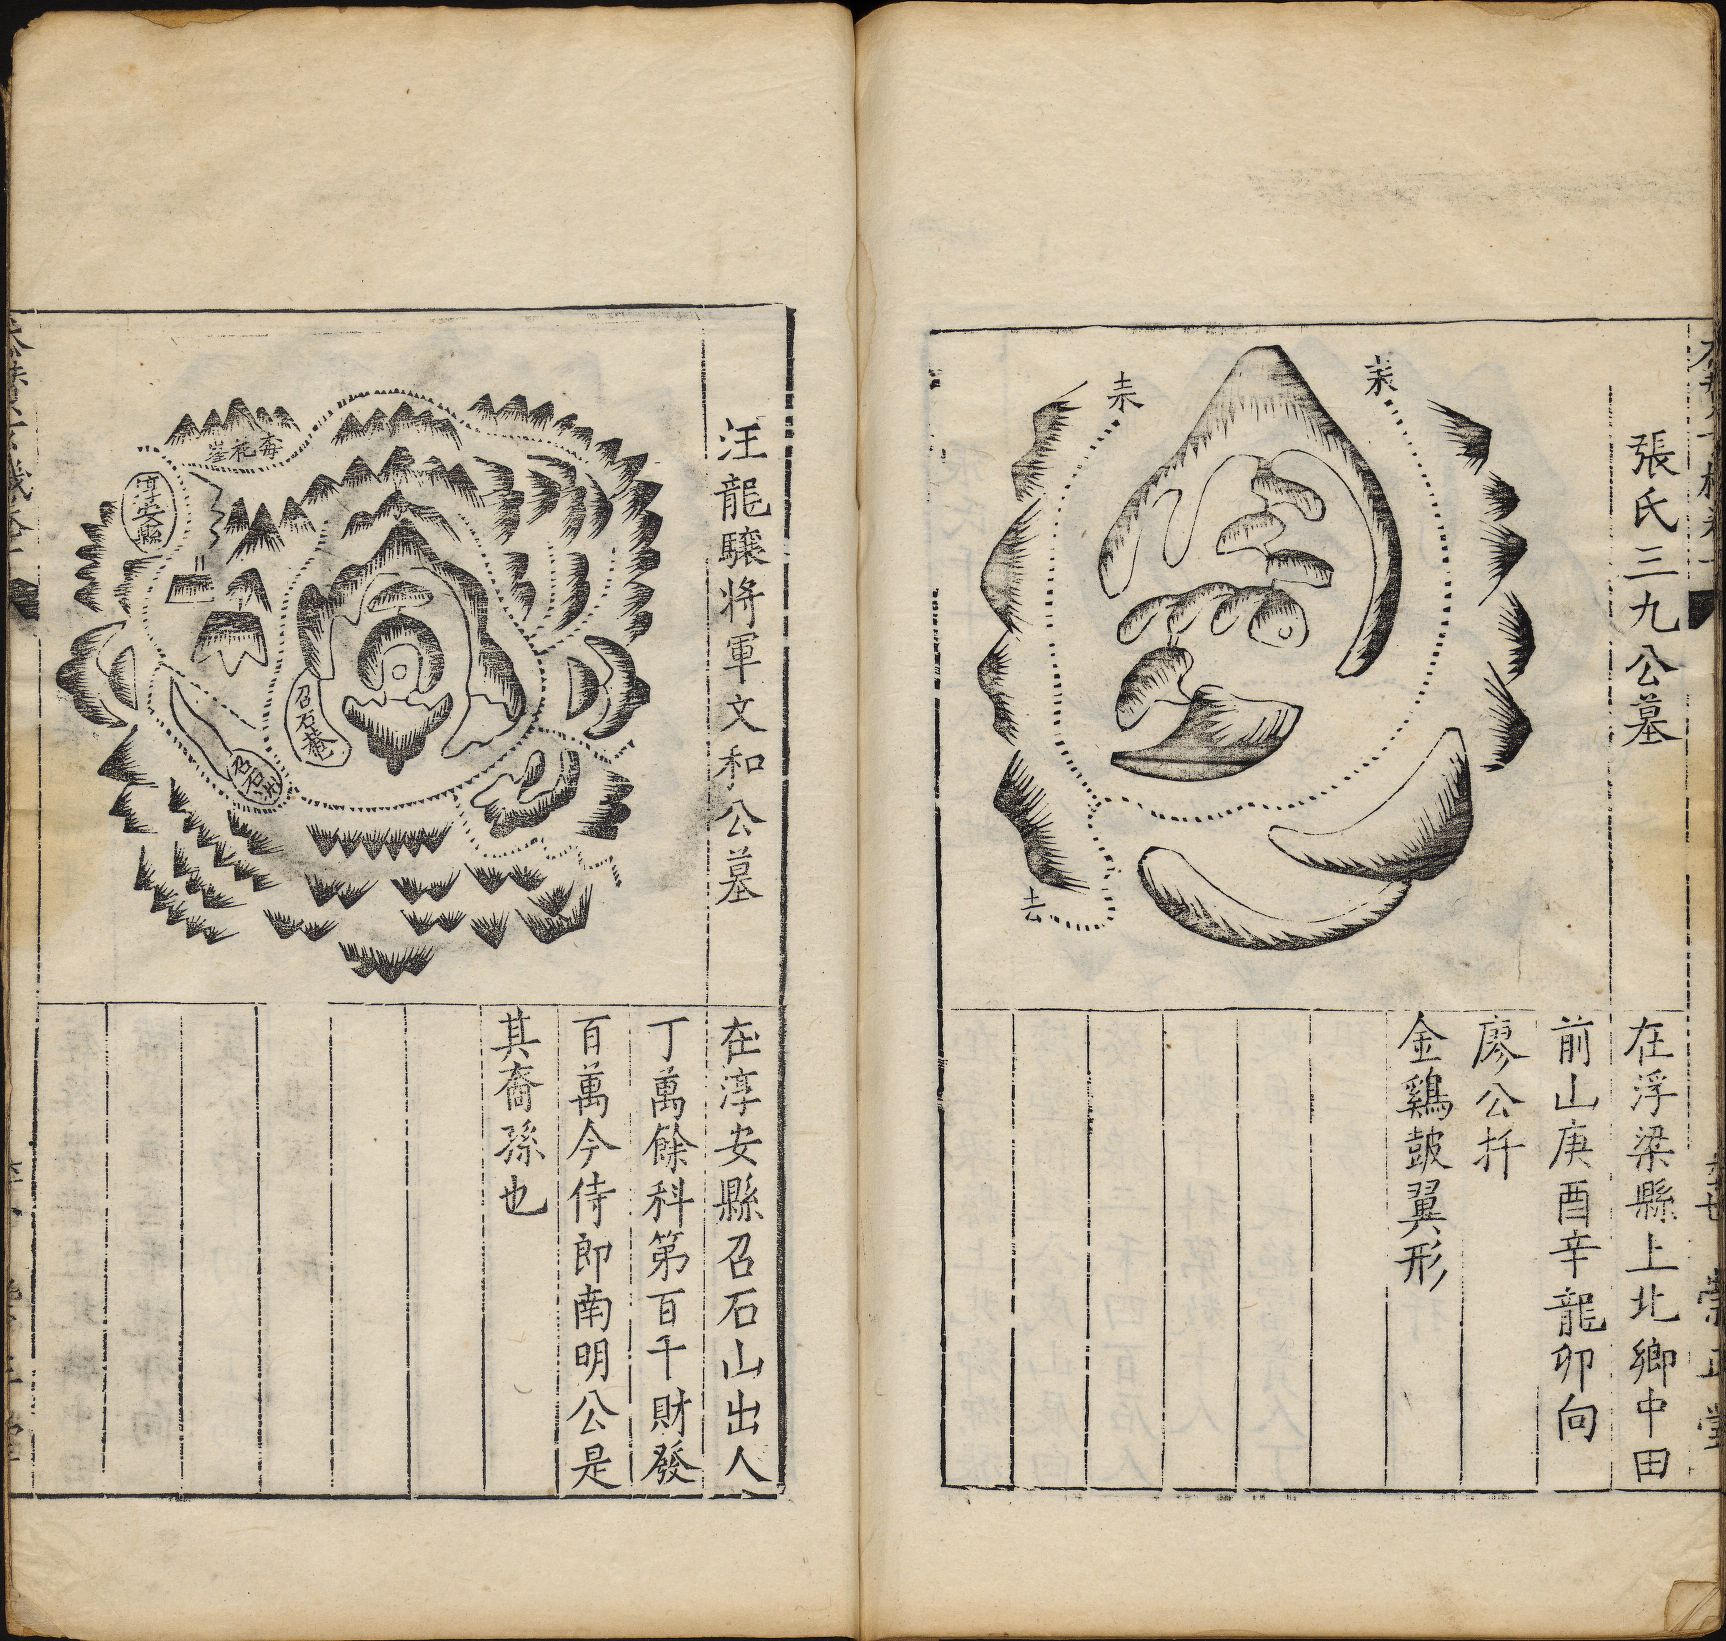 張氏三九公墓
耒
耒
去
在浮梁縣上北鄉中田
前山庚酉辛龍卯向
廖公扦
金鷄皷翼形
崇正堂
汪龍驤將軍文和公墓
淳安縣
召石菴
召石
在淳安縣召石山出人
丁萬餘科第百千財發
百萬今侍郎南明公是
其裔孫也